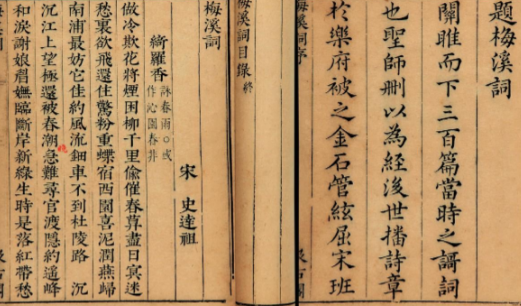 題梅溪詞
關雎而下三百篇當時之謌詞
也聖師刪以為經後世播詩章
於樂府被之金石管絃屈宋班
梅溪詞序
梅溪詞目錄 終
梅溪詞
宋 史達祖
綺羅香 詠春雨○或
作沁園春非
做冷欺花將煙困柳千里偷催春暮盡日冥迷
愁裏欲飛還住驚粉重蝶宿西園喜泥潤燕歸
南浦最妨它佳約風流鈿車不到杜陵路 沉
沉江上望極還被春潮急難尋官渡隱約遙峰
晚
和淚謝娘眉嫵臨斷岸新綠生時是落紅帶愁